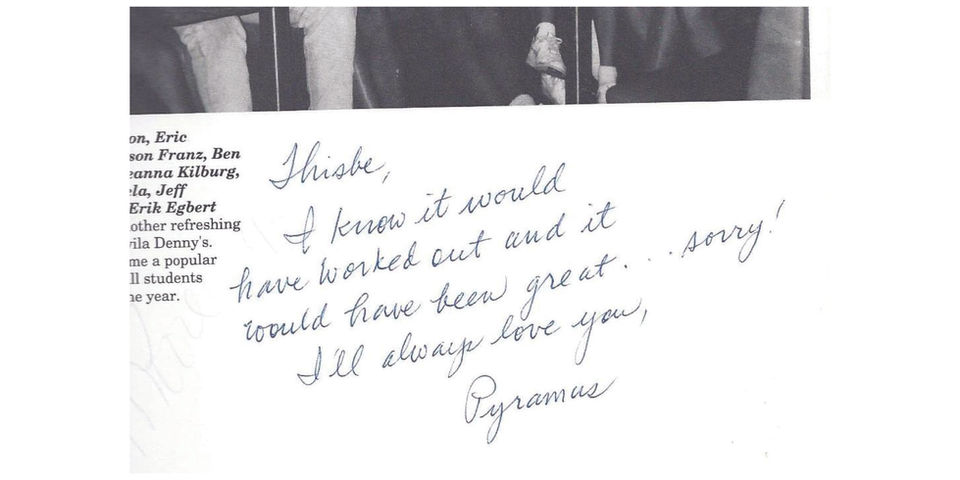 on, Eric
son Franz, Ben
eanna Kilburg,
la, Jeff
Erik Egbert
other refreshing
vila Denny's.
me a popular
ll students
he year.
Thisbe,
I know it would
have worked out and it
would have been great . . . sorry!
I'll always love you,
Pyramus